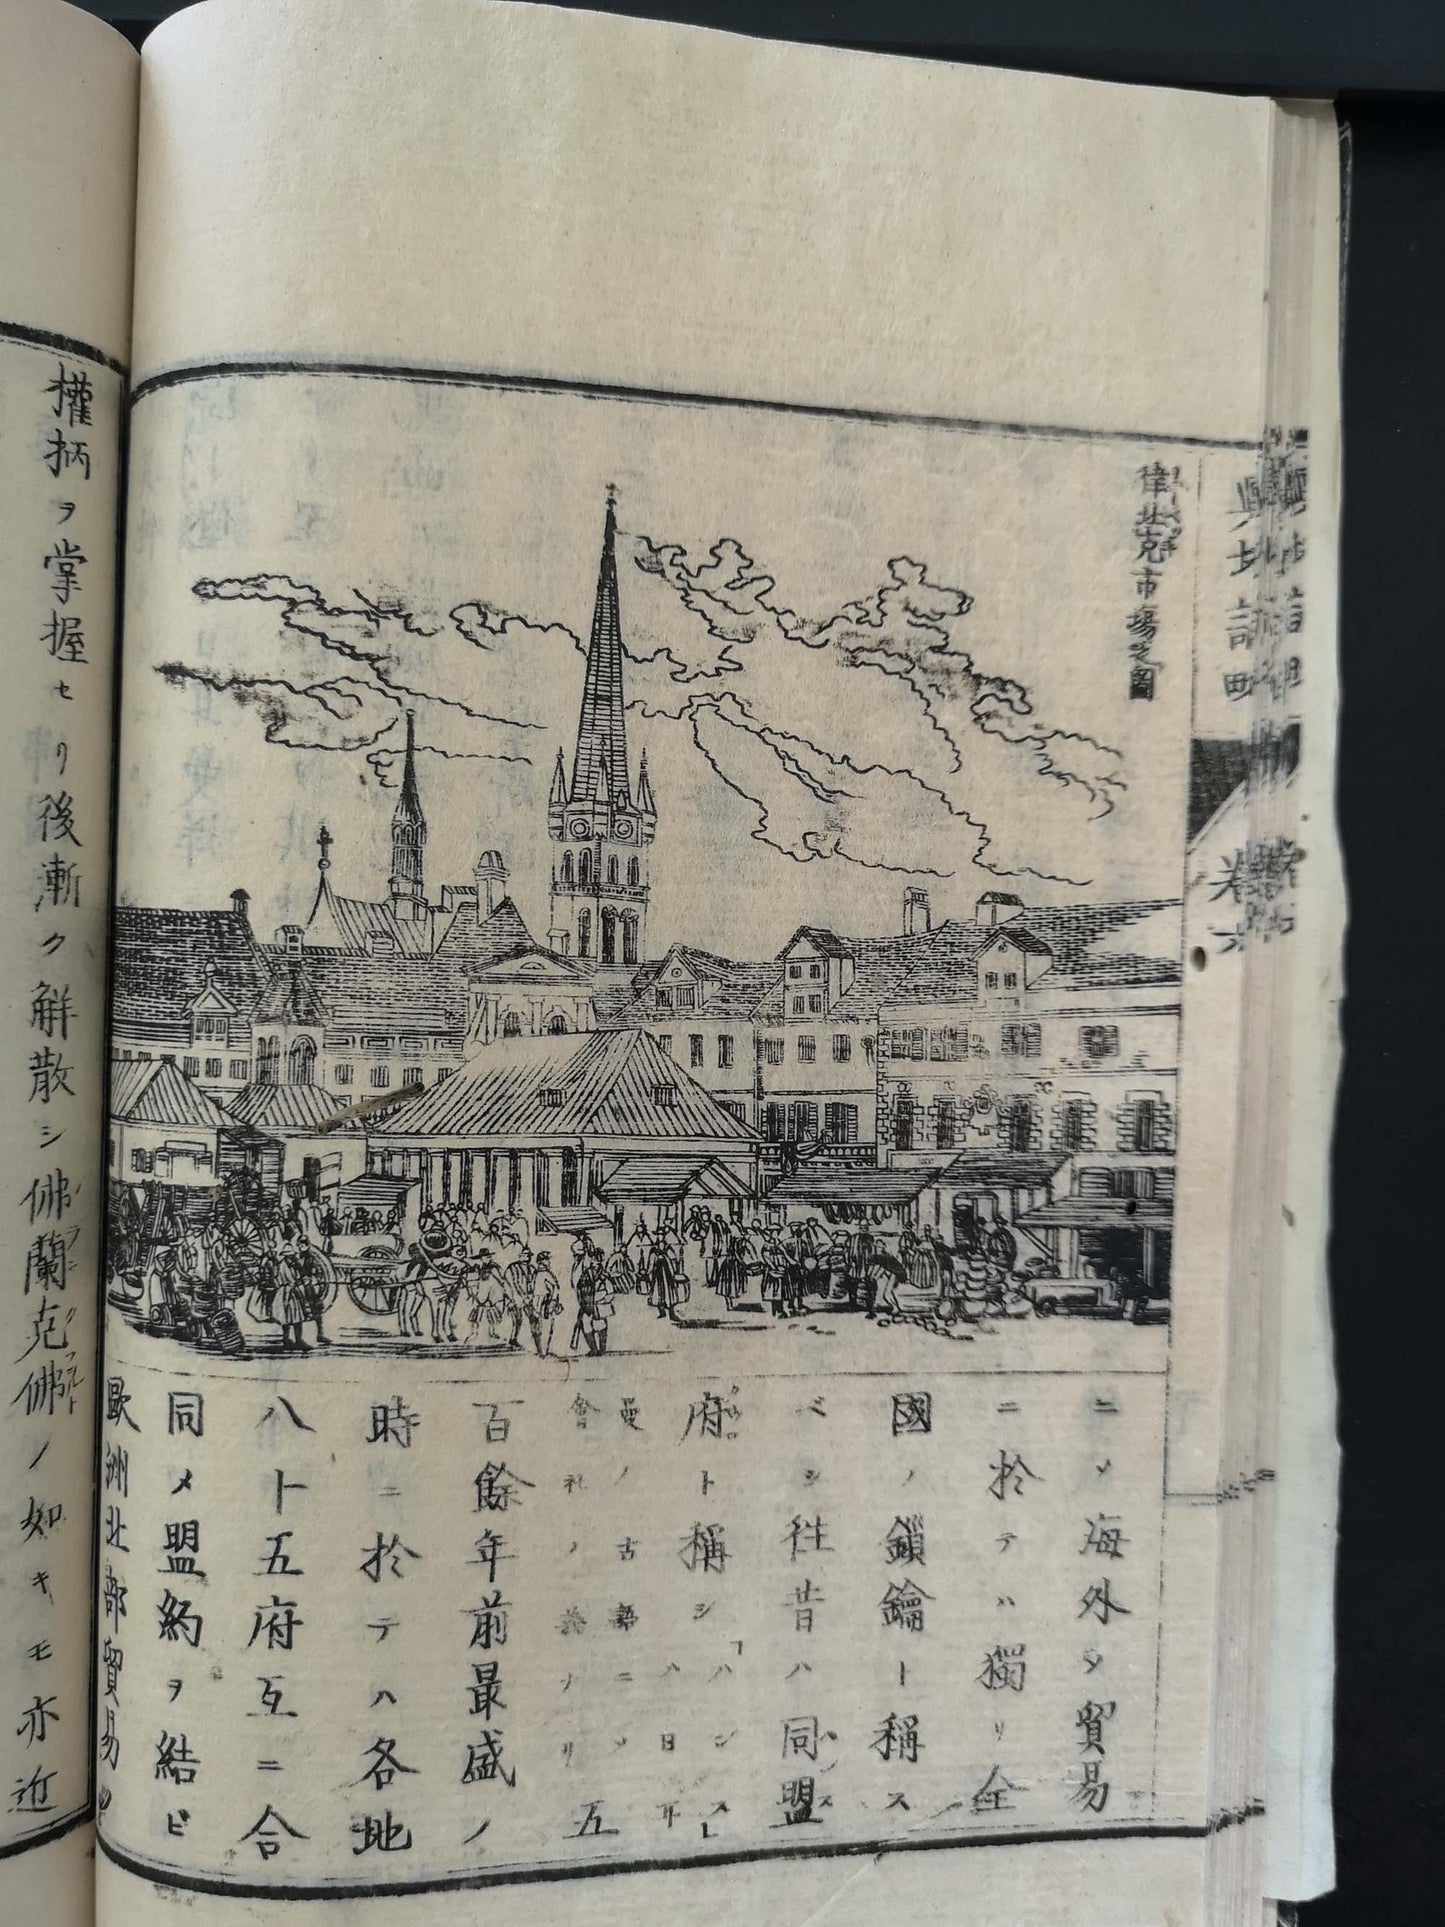 偉北克市場之圖
輿地誌畧
卷六
ニメ海外ノ貿易
ニ於テハ獨リ全
國ノ鎖鑰ト稱ス
ベシ徃昔ハ同盟
府ト稱シ
曼ノ古語ニメ
會社ノ義ナリ
五
百餘年前最盛ノ
時ニ於テハ各地
八十五府互ニ合
同メ盟約ヲ結ビ
歐洲北部貿易ノ
權柄ヲ掌握セリ後漸ク解散シ佛蘭克佛ノ如キモ亦近